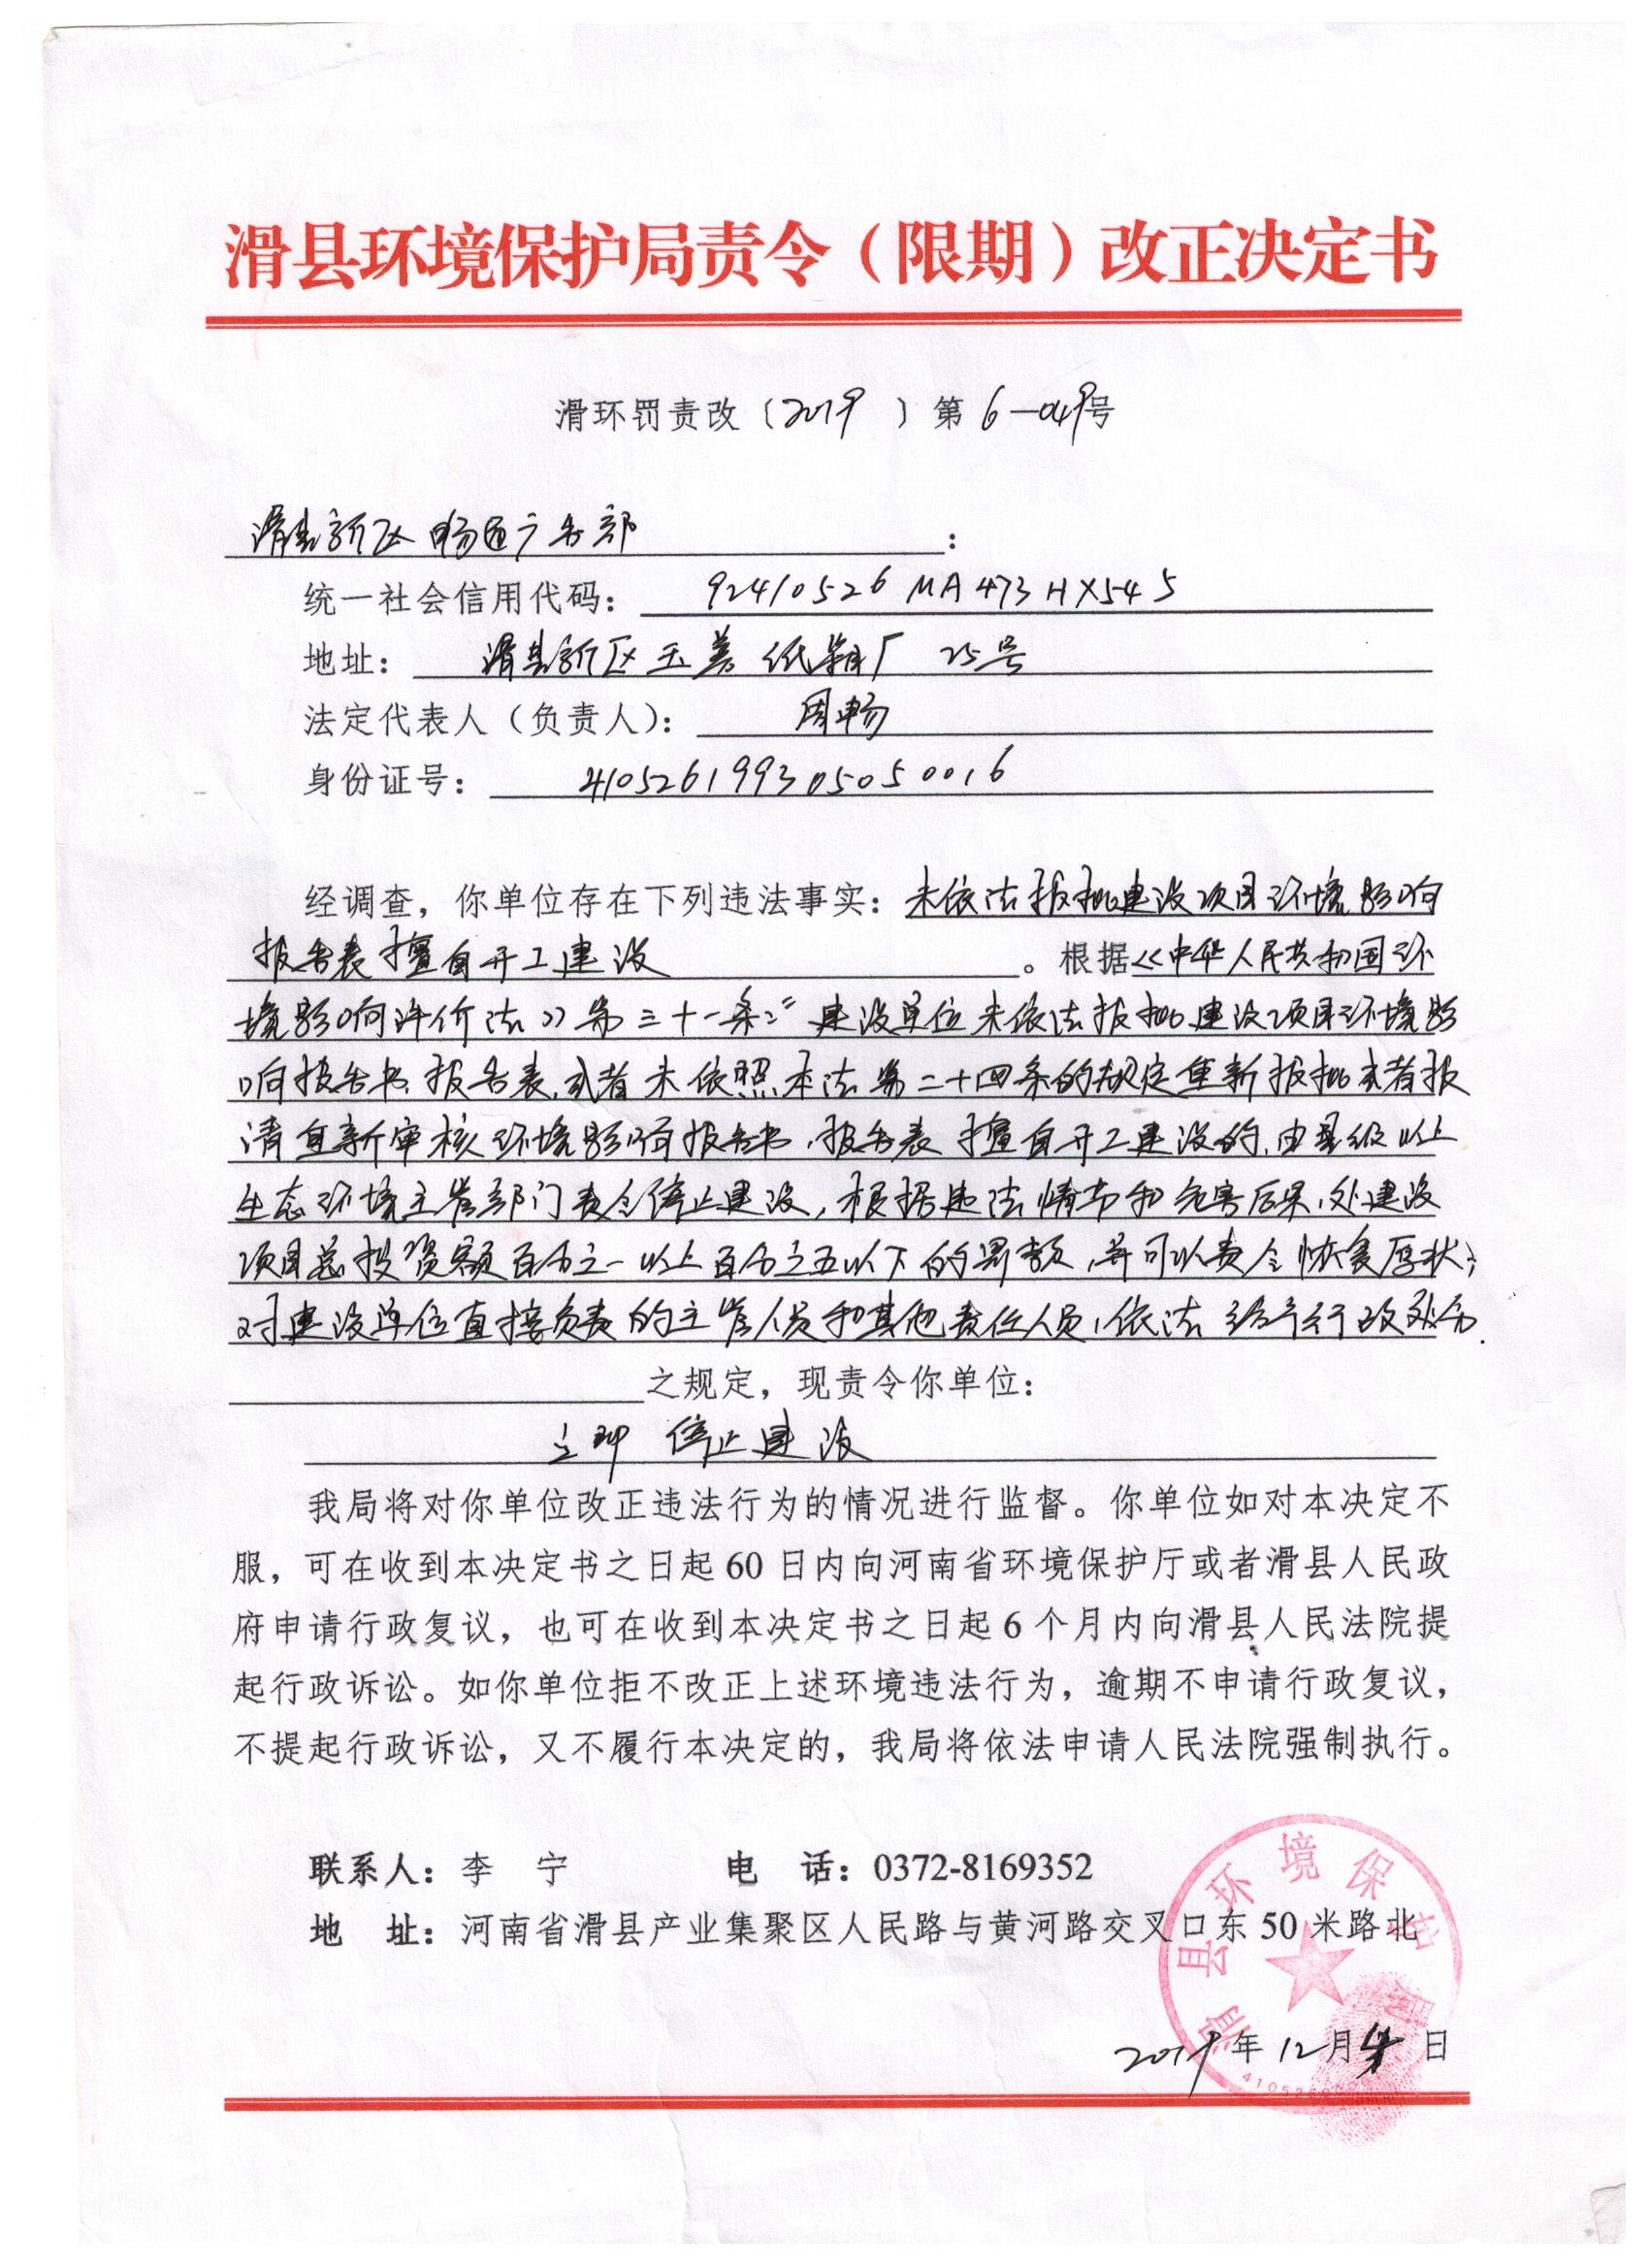 滑县环境保护局责令（限期）改正决定书
滑环罚责改〔2019〕第6-049号
滑县新区畅通广告部：
统一社会信用代码：92410526MA473HX545
地址：滑县新区玉美纸箱厂25号
法定代表人（负责人）：周畅
身份证号：410526199305050016
经调查，你单位存在下列违法事实：未依法报批建设项目环境影响
报告表擅自开工建设。根据《中华人民共和国环
境影响评价法》第三十一条：“建设单位未依法报批建设项目环境影
响报告书、报告表，或者未依照本法第二十四条的规定重新报批或者报
请重新审核环境影响报告书、报告表擅自开工建设的，由县级以上
生态环境主管部门责令停止建设，根据违法情节和危害后果，处建设
项目总投资额百分之一以上百分之五以下的罚款，并可以责令恢复原状；
对建设单位直接负责的主管人员和其他责任人员，依法给予行政处分.
之规定，现责令你单位：
立即停止建设
我局将对你单位改正违法行为的情况进行监督。你单位如对本决定不
服，可在收到本决定书之日起60日内向河南省环境保护厅或者滑县人民政
府申请行政复议，也可在收到本决定书之日起6个月内向滑县人民法院提
起行政诉讼。如你单位拒不改正上述环境违法行为，逾期不申请行政复议，
不提起行政诉讼，又不履行本决定的，我局将依法申请人民法院强制执行。
联系人：李 宁 电 话：0372-8169352
地 址：河南省滑县产业集聚区人民路与黄河路交叉口东50米路北
滑县环境保护局
2019年12月4日